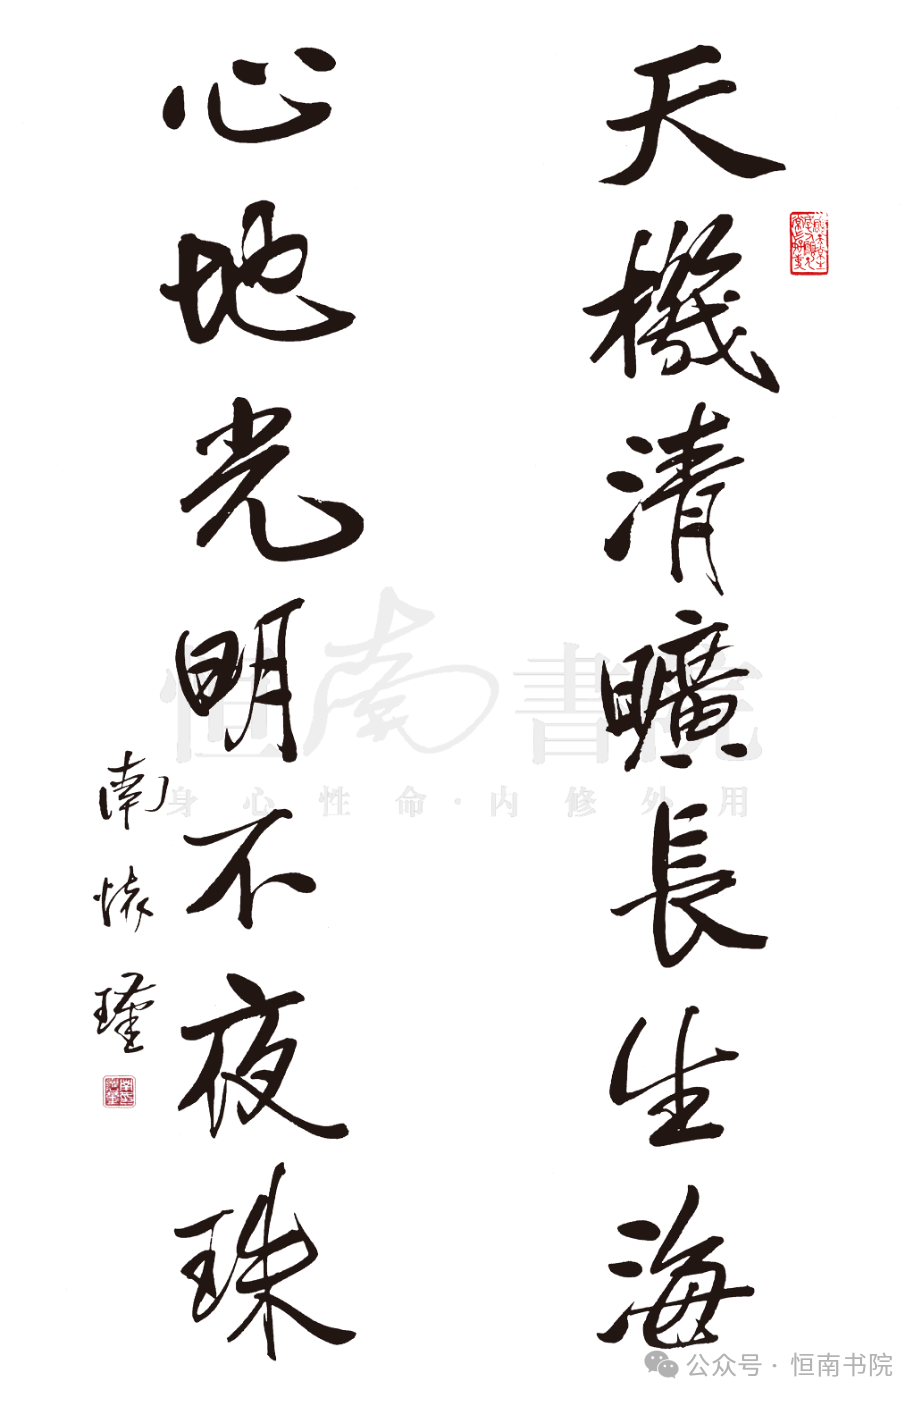 天機清曠長生海
心地光明不夜珠
南懷瑾
恒南書院
身心性命·内修外用
公众号·恒南书院